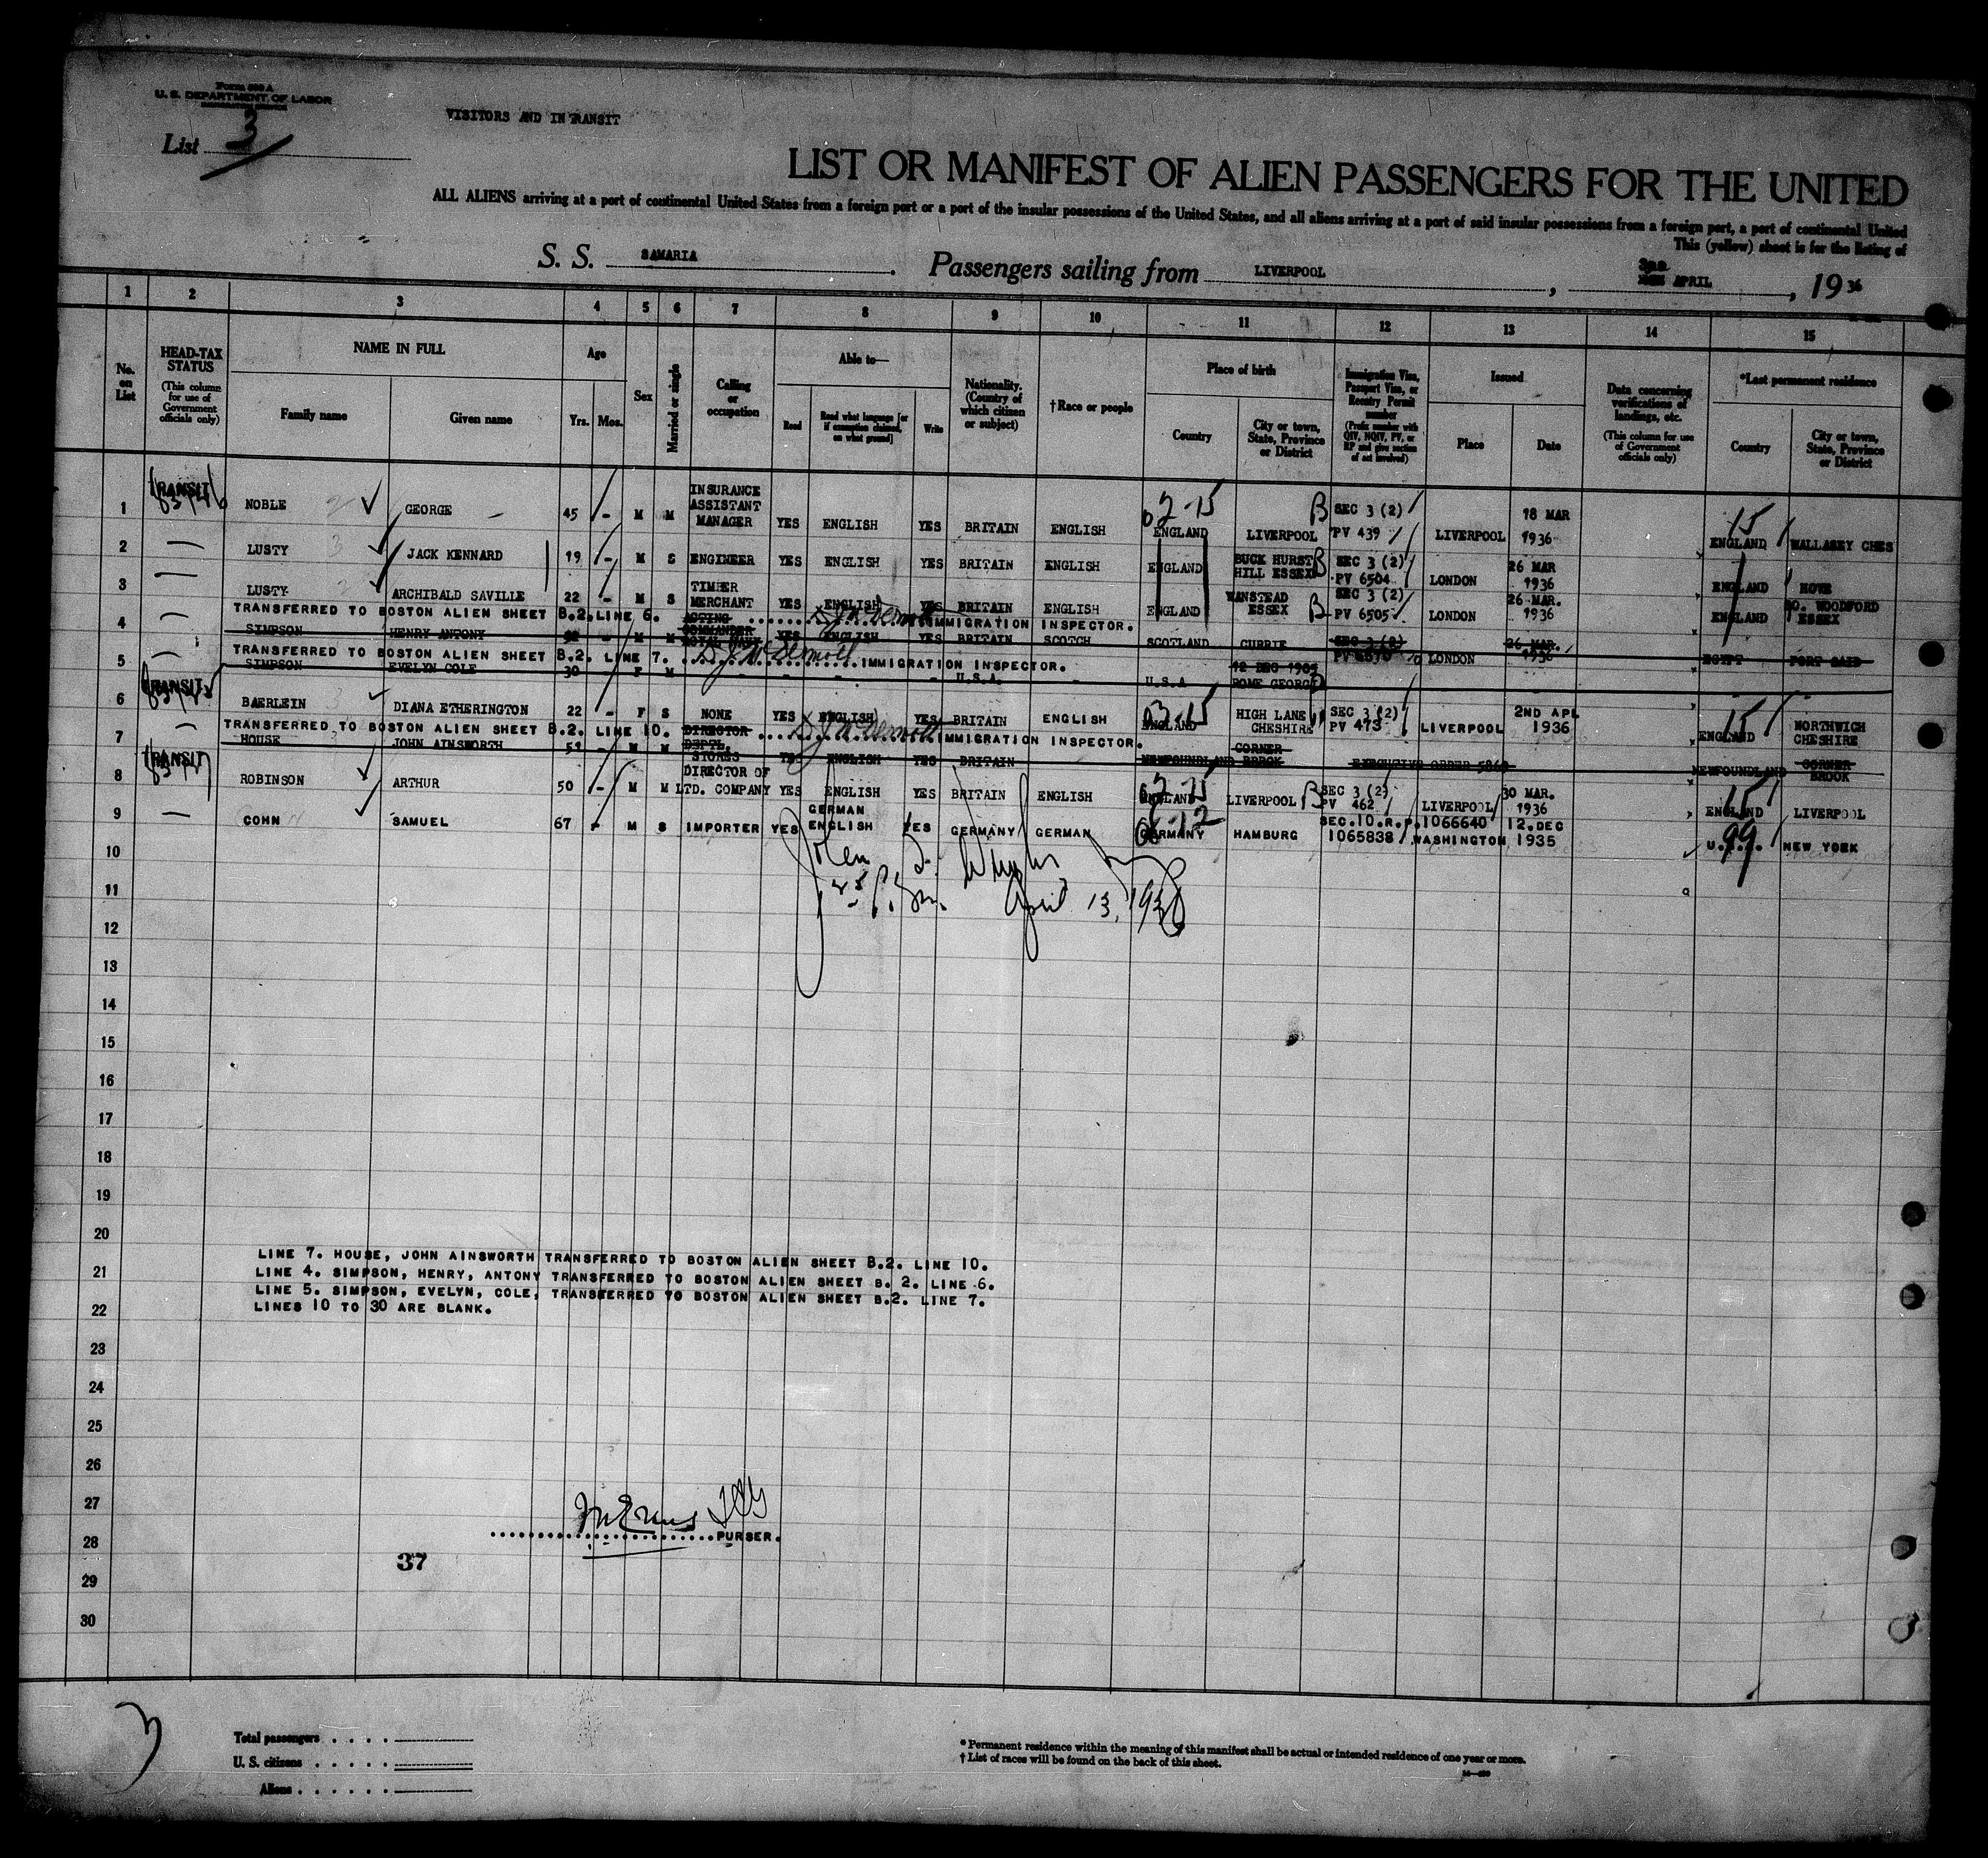 FORM 500 A
U. S. DEPARTMENT OF LABOR
List 3
VISITORS AND IN TRANSIT
LIST OR MANIFEST OF ALIEN PASSENGERS FOR THE UNITED
ALL ALIENS arriving at a port of continental United States from a foreign port or a port of the insular possessions of the United States, and all aliens arriving at a port of said insular possessions from a foreign port, a port of continental United
This (yellow) sheet is for the listing of
S. S. SAMARIA. Passengers sailing from LIVERPOOL, 3RD APRIL, 1936
1 2 3 4 5 6 7 8 9 10 11 12 13 14 15
No. on List
HEAD-TAX STATUS
(This column for use of Government officials only)
NAME IN FULL
Family name
Given name
Age
Yrs. Mos.
Sex
Married or single
Calling or occupation
Able to—
Read
Read what language [or if exemption claimed, on what ground]
Write
Nationality. (Country of which citizen or subject)
†Race or people
Place of birth
Country
City or town, State, Province or District
Immigration Visa, Passport Visa, or Reentry Permit number
(Prefix number with QIV, NQIV, PV, or RP and give section of act involved)
Issued
Place
Date
Data concerning verifications of landings, etc.
(This column for use of Government officials only)
*Last permanent residence
Country
City or town, State, Province or District
1 TRANSIT NOBLE GEORGE 45 - M M INSURANCE ASSISTANT MANAGER YES ENGLISH YES BRITAIN ENGLISH ENGLAND LIVERPOOL SEC 3 (2) PV 439 LIVERPOOL 18 MAR 1936 ENGLAND WALLASEY CHES
2 LUSTY JACK KENNARD 19 - M S ENGINEER YES ENGLISH YES BRITAIN ENGLISH ENGLAND BUCK HURST HILL ESSEX SEC 3 (2) PV 6504 LONDON 26 MAR 1936 ENGLAND HOVE
3 LUSTY ARCHIBALD SAVILLE 22 - M S TIMBER MERCHANT YES ENGLISH YES BRITAIN ENGLISH ENGLAND WANSTEAD ESSEX SEC 3 (2) PV 6505 LONDON 26 MAR. 1936 ENGLAND SO. WOODFORD ESSEX
TRANSFERRED TO BOSTON ALIEN SHEET B.2. LINE 6. IMMIGRATION INSPECTOR.
4 SIMPSON HENRY ANTONY M M ACTING COMMANDER ROYAL NAVY YES ENGLISH YES BRITAIN SCOTCH SCOTLAND CURRIE SEC 3 (2) LONDON 26 MAR. 1936 EGYPT PORT SAID
TRANSFERRED TO BOSTON ALIEN SHEET B.2. LINE 7. IMMIGRATION INSPECTOR.
5 SIMPSON EVELYN COLE 30 F M - - - - U.S.A. - U.S.A 12 DEC 1905 ROME GEORGIA
6 TRANSIT BAERLEIN DIANA ETHERINGTON 22 - F S NONE YES ENGLISH YES BRITAIN ENGLISH ENGLAND HIGH LANE CHESHIRE SEC 3 (2) PV 473 LIVERPOOL 2ND APL 1936 ENGLAND NORTHWICH CHESHIRE
TRANSFERRED TO BOSTON ALIEN SHEET B.2. LINE 10. IMMIGRATION INSPECTOR.
7 HOUSE JOHN AINSWORTH 51 - M M DIRECTOR DEPTL. STORES YES ENGLISH YES BRITAIN NEWFOUNDLAND CORNER BROOK EXECUTIVE ORDER NEWFOUNDLAND CORNER BROOK
8 TRANSIT ROBINSON ARTHUR 50 - M M DIRECTOR OF LTD. COMPANY YES ENGLISH YES BRITAIN ENGLISH ENGLAND LIVERPOOL SEC 3 (2) PV 462 LIVERPOOL 30 MAR. 1936 ENGLAND LIVERPOOL
9 COHN SAMUEL 67 - M S IMPORTER YES GERMAN ENGLISH YES GERMANY GERMAN GERMANY HAMBURG SEC.10.R.P.1066640 1065838 WASHINGTON 12.DEC 1935 U.S.A. NEW YORK
10
April 13, 1936
11
12
13
14
15
16
17
18
19
20
LINE 7. HOUSE, JOHN AINSWORTH TRANSFERRED TO BOSTON ALIEN SHEET B.2. LINE 10.
21
LINE 4. SIMPSON, HENRY, ANTONY TRANSFERRED TO BOSTON ALIEN SHEET B. 2. LINE 6.
LINE 5. SIMPSON, EVELYN, COLE, TRANSFERRED TO BOSTON ALIEN SHEET B.2. LINE 7.
22
LINES 10 TO 30 ARE BLANK.
23
24
25
26
27
28
PURSER.
37
29
30
Total passengers
U. S. citizens
Aliens
* Permanent residence within the meaning of this manifest shall be actual or intended residence of one year or more.
† List of races will be found on the back of this sheet.